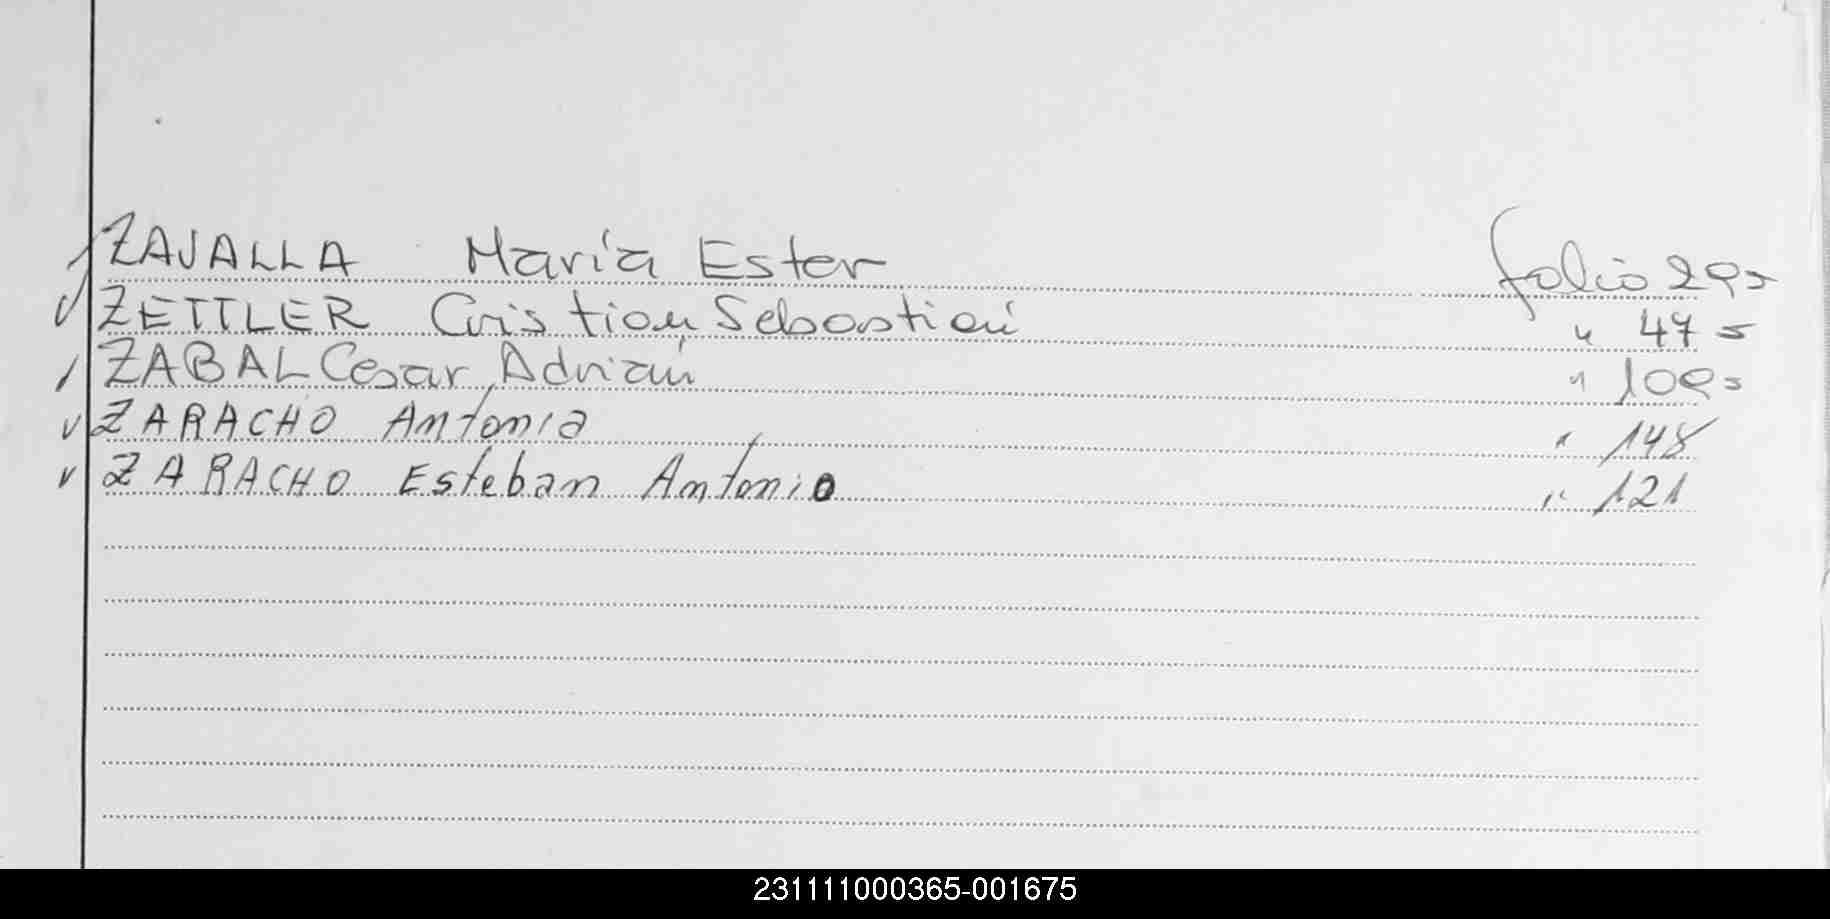 ZAVALLA María Ester folio 29
ZETTLER Cristian Sebastián " 47
ZABAL Cesar Adrián " 100
ZARACHO Antonia " 148
ZARACHO Esteban Antonio " 121
231111000365-001675